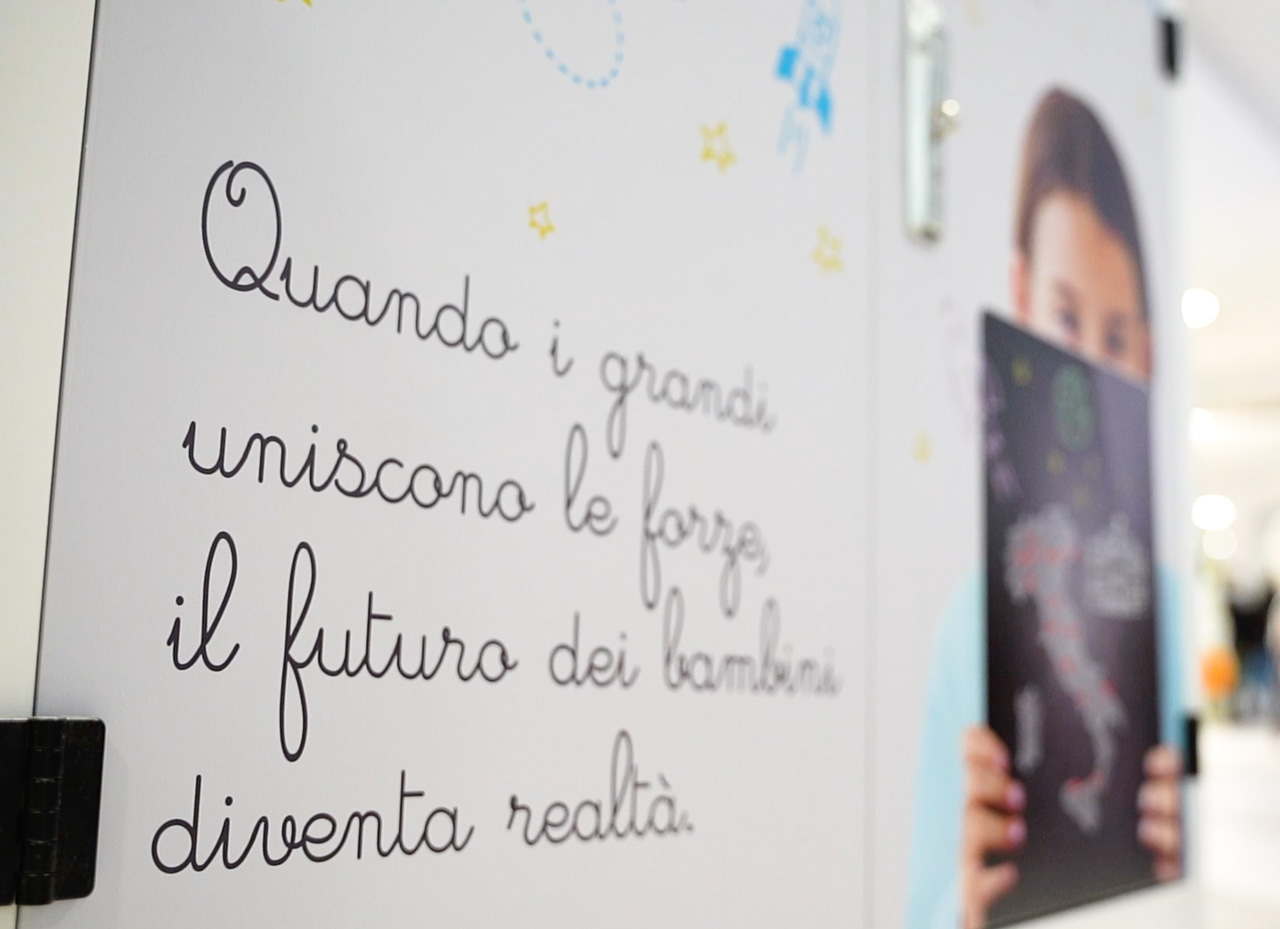 Quando i grandi
uniscono le forze,
il futuro dei bambini
diventa realtà.